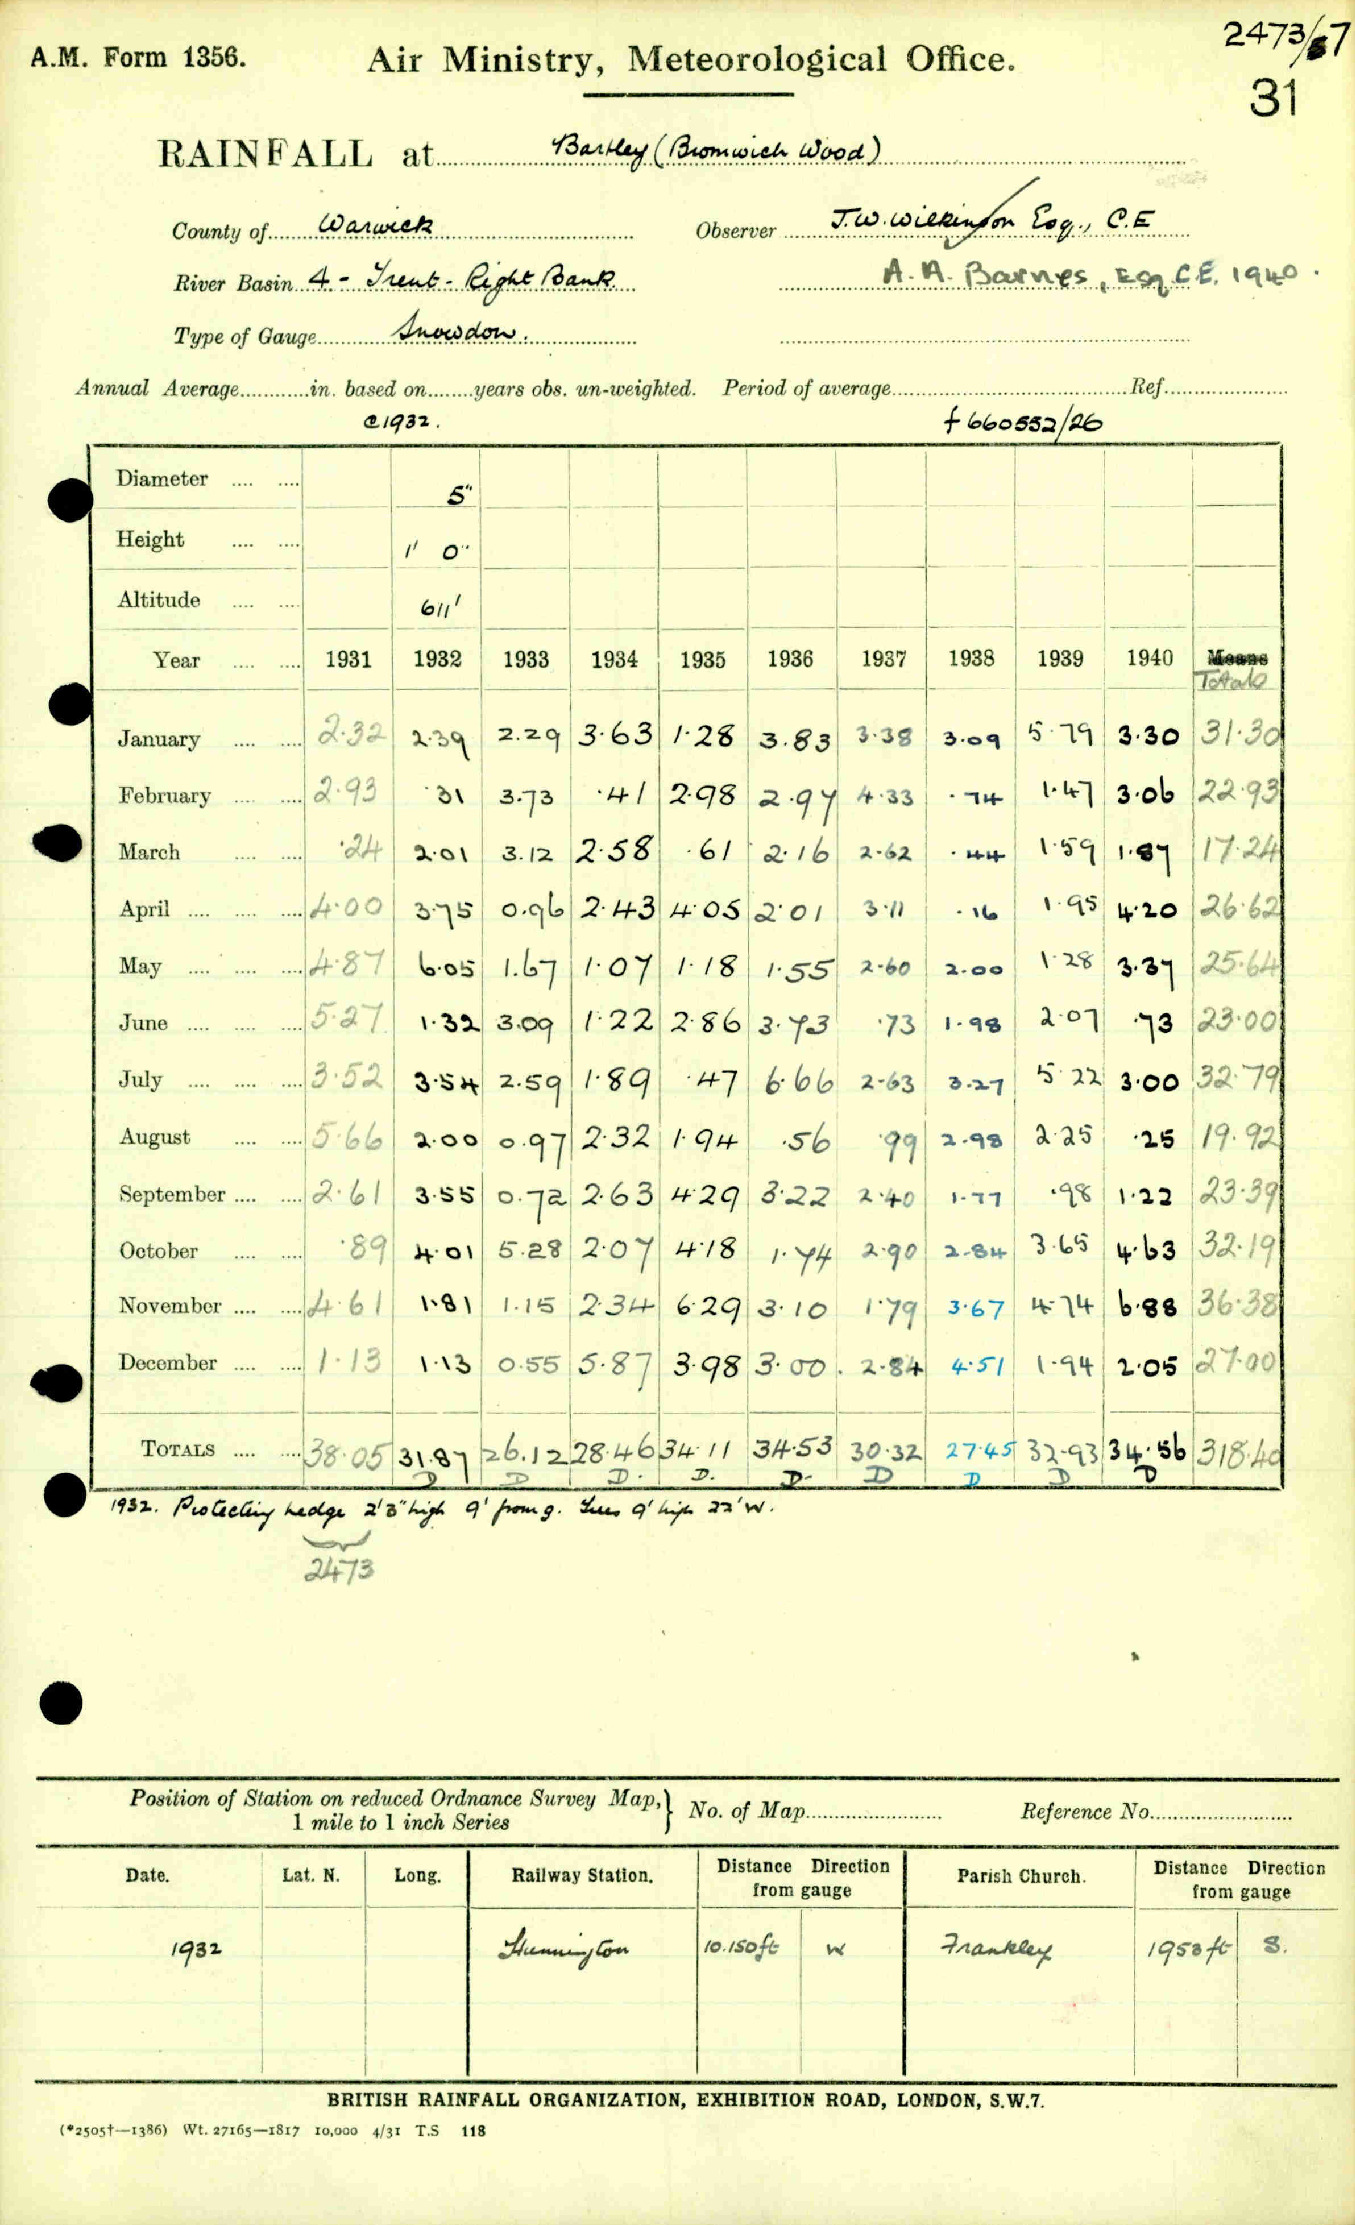 2473/67
A.M. Form 1356. Air Ministry, Meteorological Office.
31
RAINFALL at Bartley (Bromwich Wood)
County of Warwick Observer J.W. Wilkinson Esq., C.E
River Basin 4 - Trent - Right Bank A. A. Barnes, Esq C.E. 1940.
Type of Gauge Snowdon.
Annual Average in. based on years obs. un-weighted. Period of average Ref.
e1932. f 660552/26
Diameter 5"
Height 1' 0"
Altitude 611'
Year 1931 1932 1933 1934 1935 1936 1937 1938 1939 1940 Means
Totals
January 2.32 2.39 2.29 3.63 1.28 3.83 3.38 3.09 5.79 3.30 31.30
February 2.93 .31 3.73 .41 2.98 2.97 4.33 .74 1.47 3.06 22.93
March .24 2.01 3.12 2.58 .61 2.16 2.62 .44 1.59 1.87 17.24
April 4.00 3.75 0.96 2.43 4.05 2.01 3.11 .16 1.95 4.20 26.62
May 4.87 6.05 1.67 1.07 1.18 1.55 2.60 2.00 1.28 3.37 25.64
June 5.27 1.32 3.09 1.22 2.86 3.73 .73 1.98 2.07 .73 23.00
July 3.52 3.54 2.59 1.89 .47 6.66 2.63 3.27 5.22 3.00 32.79
August 5.66 2.00 0.97 2.32 1.94 .56 .99 2.98 2.25 .25 19.92
September 2.61 3.55 0.72 2.63 4.29 3.22 2.40 1.77 .98 1.22 23.39
October .89 4.01 5.28 2.07 4.18 1.74 2.90 2.84 3.65 4.63 32.19
November 4.61 1.81 1.15 2.34 6.29 3.10 1.79 3.67 4.74 6.88 36.38
December 1.13 1.13 0.55 5.87 3.98 3.00. 2.84 4.51 1.94 2.05 27.00
TOTALS 38.05 31.87 26.12 28.46 34.11 34.53 30.32 27.45 32.93 34.56 318.40
D D D. D. D- D D D D
1932. Protecting hedge 2'3" high 9' from g. Trees 9' high 22' W.
2473
Position of Station on reduced Ordnance Survey Map, } No. of Map Reference No.
1 mile to 1 inch Series
Date. Lat. N. Long. Railway Station. Distance Direction from gauge Parish Church. Distance Direction from gauge
1932 Hunnington 10.150ft W Frankley 1953 ft S.
BRITISH RAINFALL ORGANIZATION, EXHIBITION ROAD, LONDON, S.W.7.
(*2505†—1386) Wt. 27165—1817 10,000 4/31 T.S 118